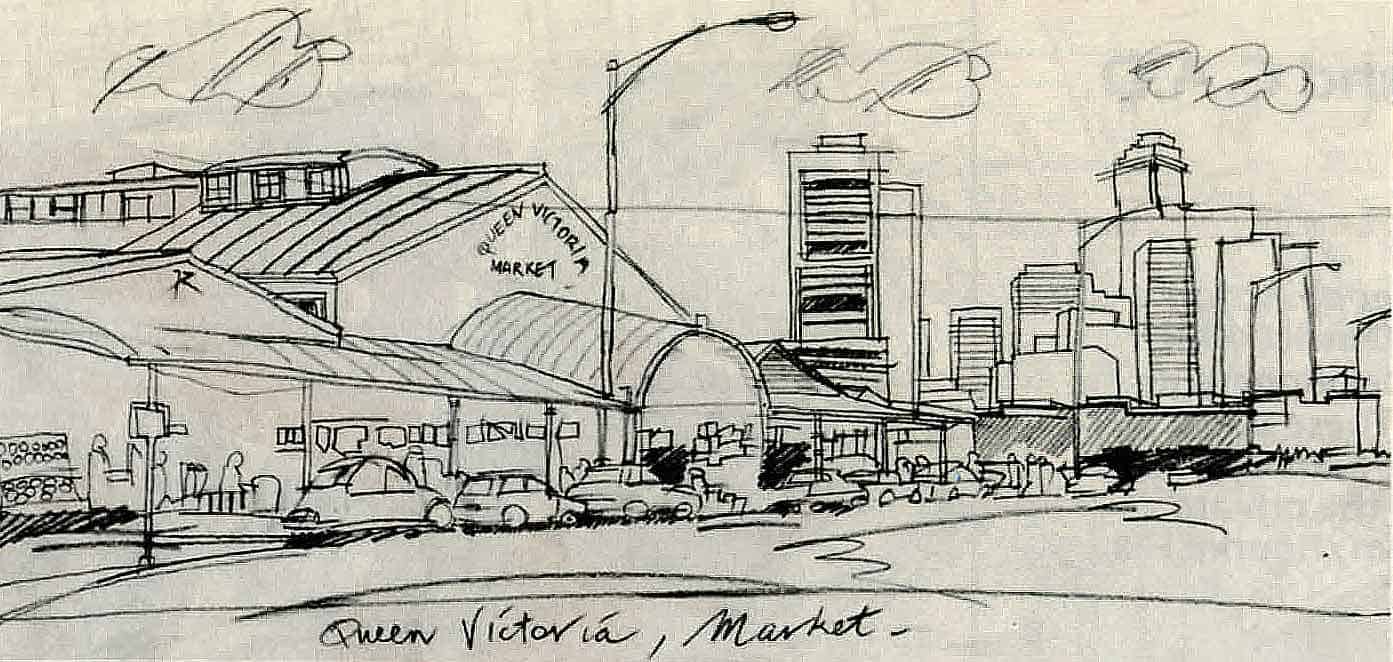 QUEEN VICTORIA
MARKET
R
Queen Victoria, Market -